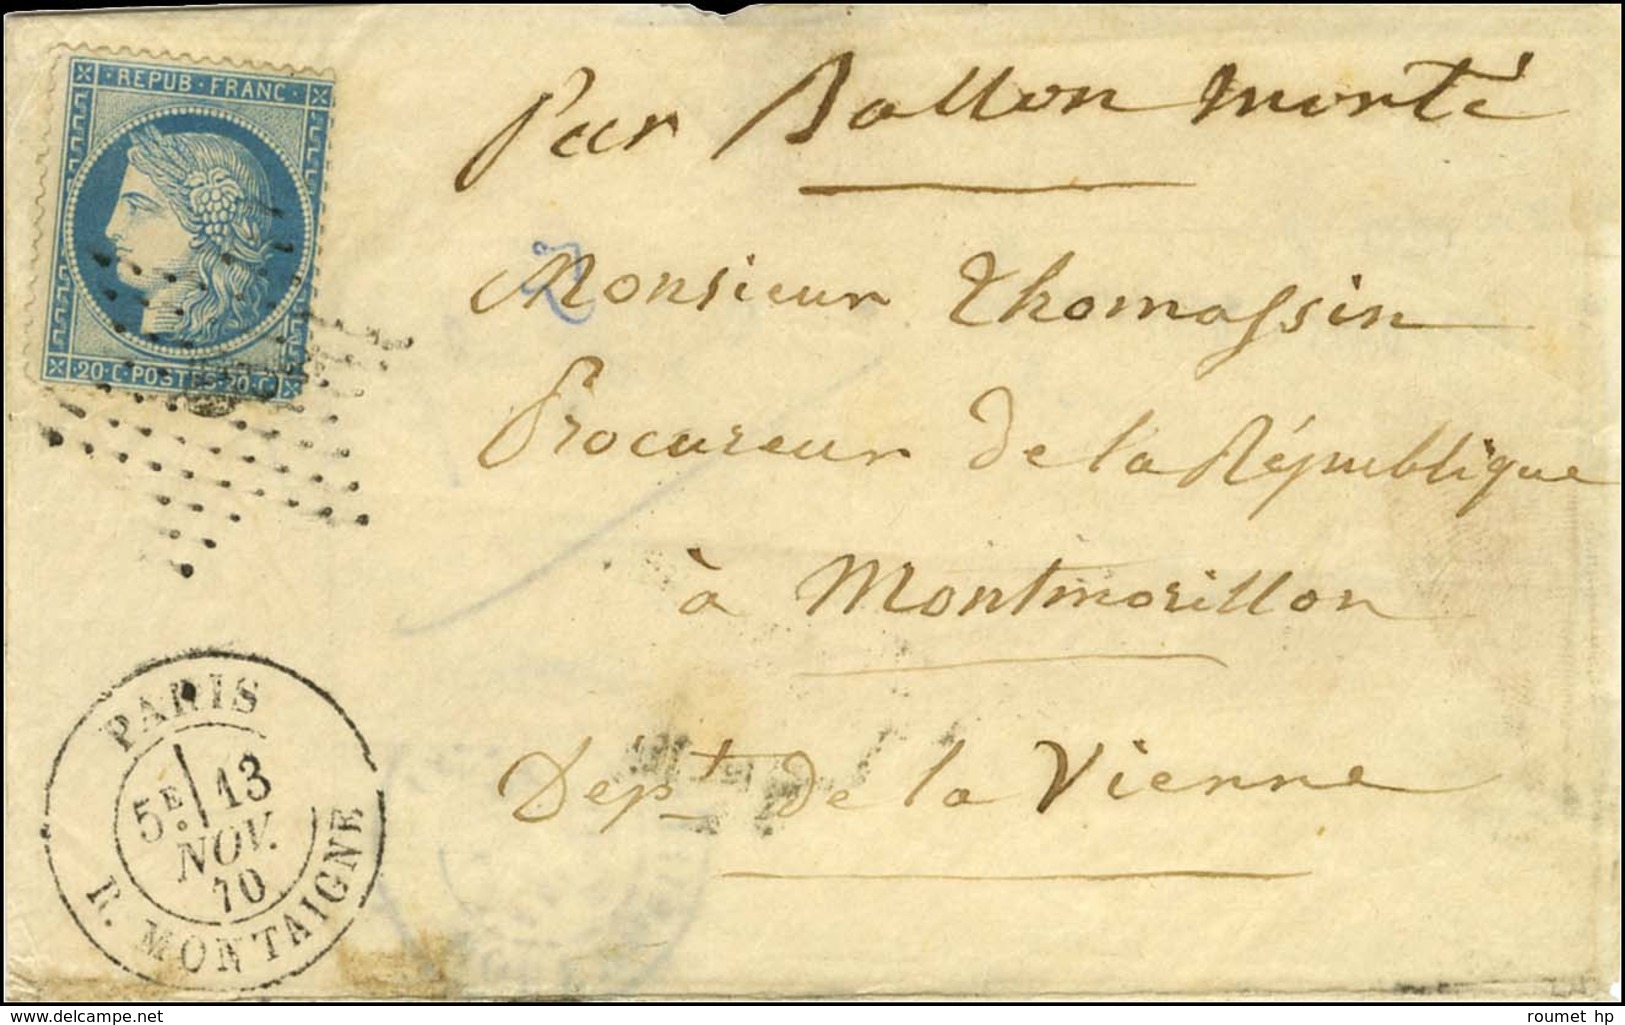 REPUB·FRANC·
·20·C·POSTES·20·C·
Par Ballon monté
Monsieur Thomassin
Procureur de la République
à Montmorillon
Dept de la Vienne
PARIS
5E 13
NOV.
70
R. MONTAIGNE
roumet hp